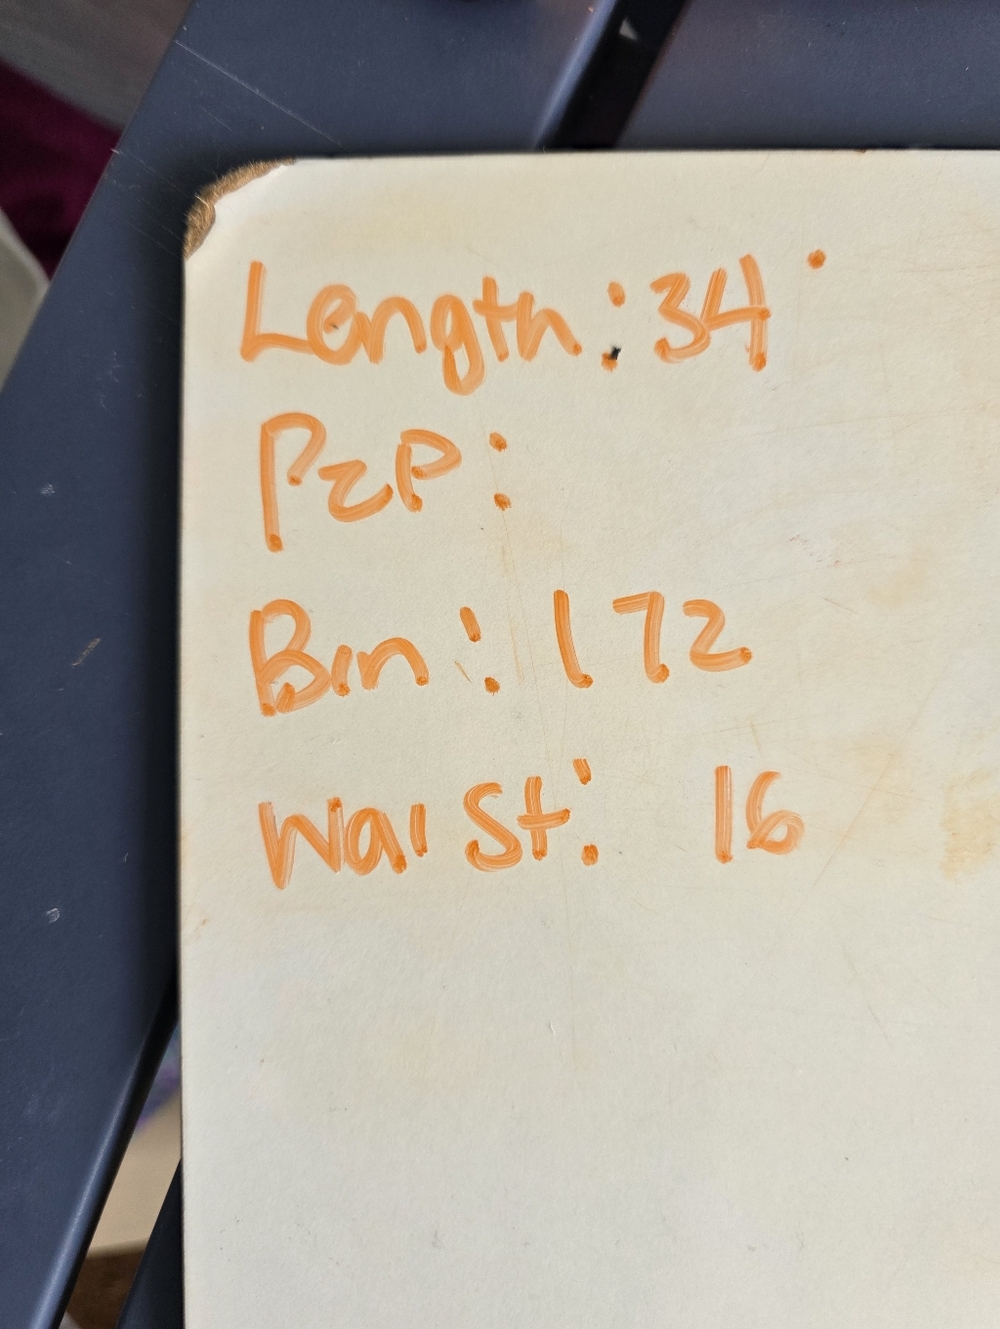 Length: 34
P2P:
Bin: 172
Waist: 16